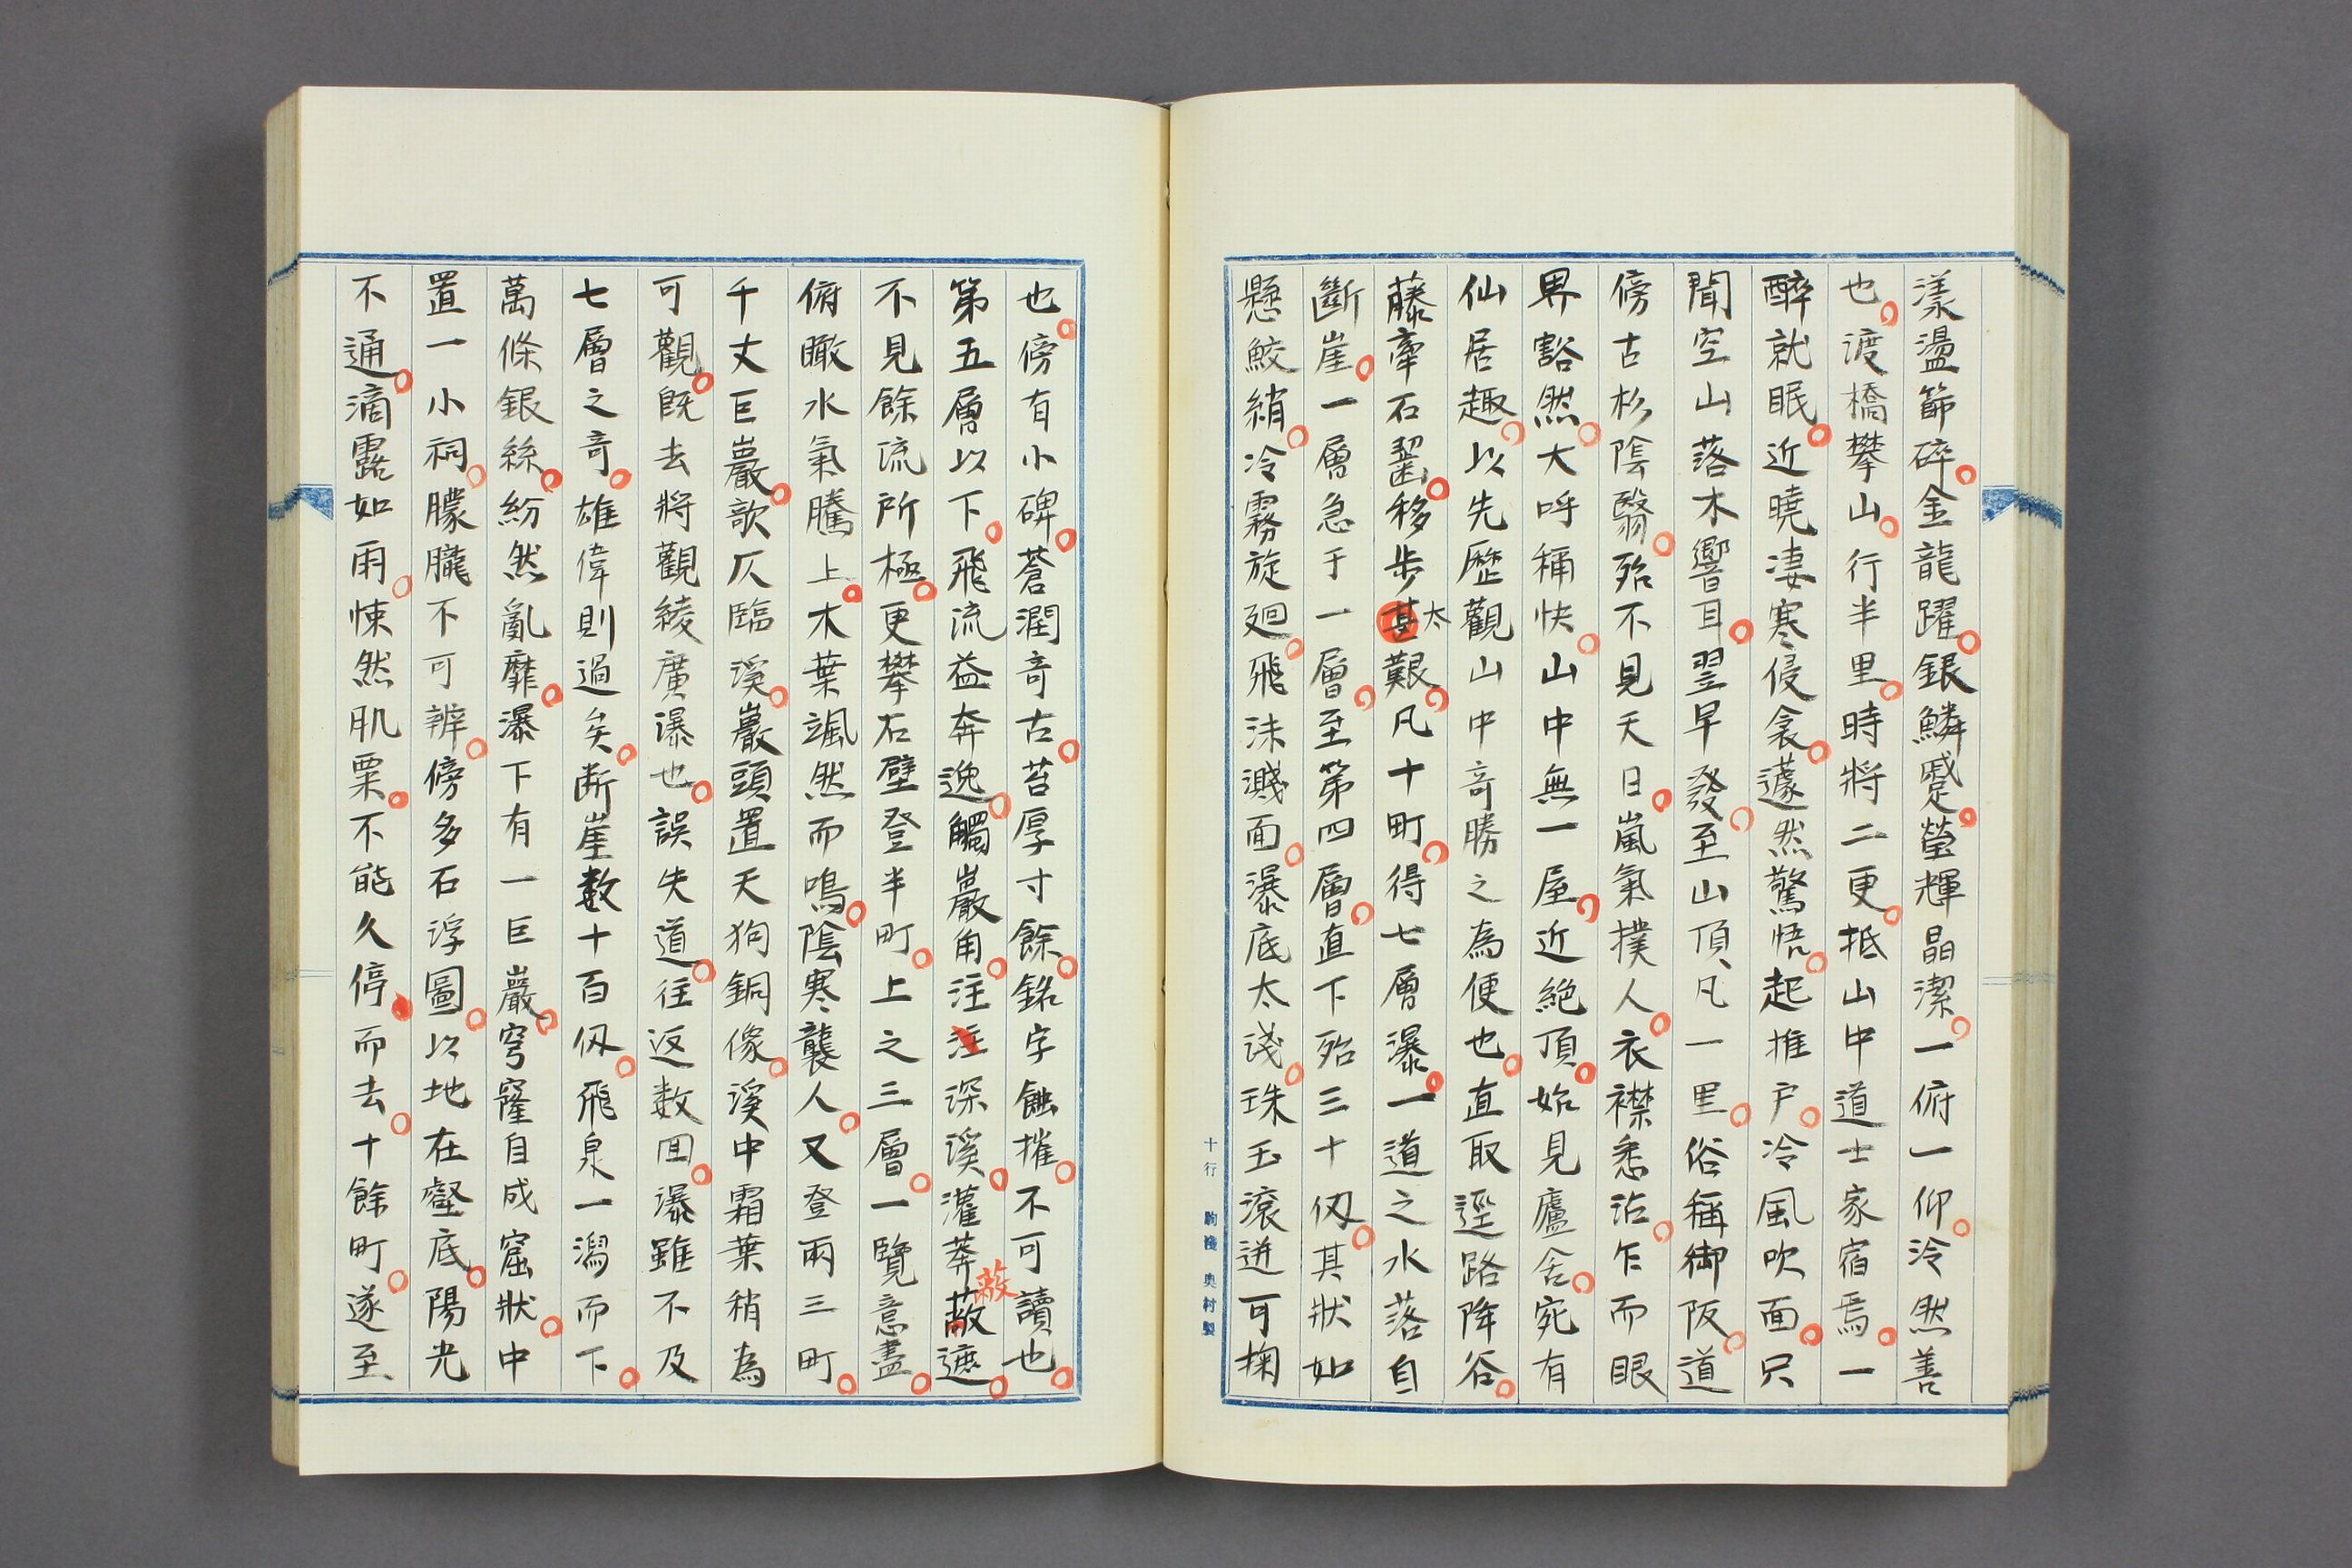 漾盪篩碎金龍躍銀鱗蹙瑩輝晶潔一俯一仰泠然善
也渡橋攀山行半里時將二更抵山中道士家宿焉一
醉就眠近曉凄寒侵衾蘧然驚悟起推戸冷風吹面只
聞空山落木響耳翌早發至山頂凡一里俗稱御阪道
傍古杉陰翳殆不見天日嵐氣撲人衣襟悉沾乍而眼
界豁然大呼稱快山中無一屋近絶頂始見廬舍宛有
仙居趣以先歷觀山中奇勝之為便也直取逕路降谷
藤牽石齧移步甚太艱凡十町得七層瀑一道之水落自
斷崖一層急于一層至第四層直下殆三十仭其狀如
懸鮫綃冷霧旋廻飛沫濺面瀑底太淺珠玉滾迸可掬
十行 奥村製
也傍有小碑蒼潤奇古苔厚寸餘銘字蝕摧不可讀也
第五層以下飛流益奔逸觸巖角注注深溪灌莽蔽蔽遮
不見餘流所極更攀石壁登半町上之三層一覽意盡
俯瞰水氣騰上木葉颯然而鳴陰寒襲人又登兩三町
千丈巨巖欹仄臨溪巖頭置天狗銅像溪中霜葉稍為
可觀既去將觀綾廣瀑也誤失道往返数回瀑雖不及
七層之奇雄偉則過矣断崖数十百仭飛泉一瀉而下
萬條銀絲紛然亂靡瀑下有一巨巖穹窿自成窟狀中
置一小祠朦朧不可辨傍多石浮圖以地在壑底陽光
不通滴露如雨悚然肌粟不能久停而去十餘町遂至